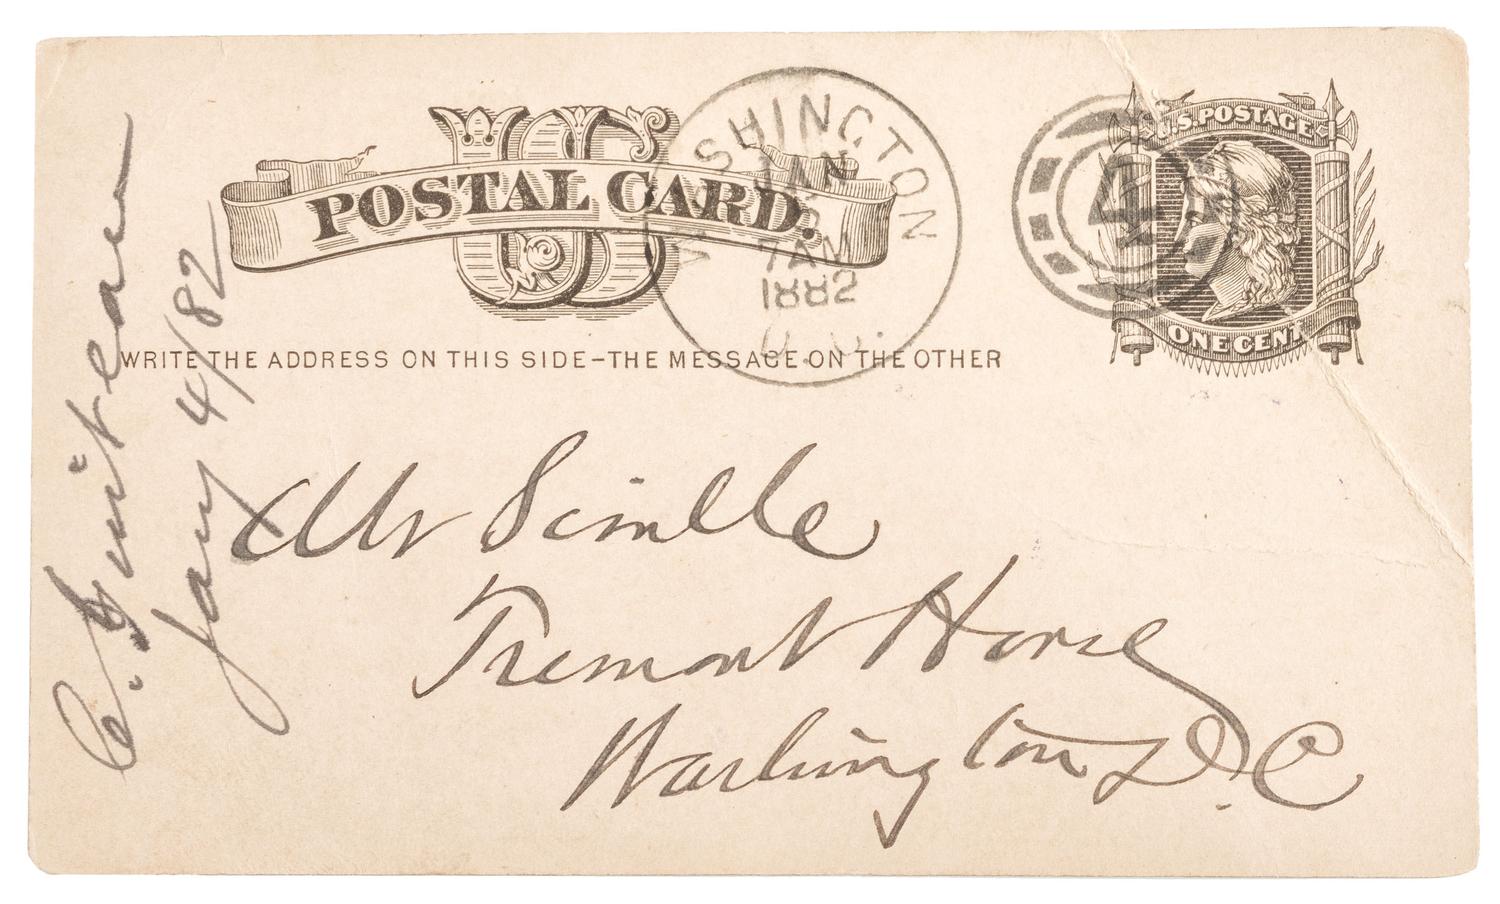 US
POSTAL CARD.
WASHINGTON
JAN
7AM
1882
D.C.
4
U.S. POSTAGE
ONE CENT
WRITE THE ADDRESS ON THIS SIDE–THE MESSAGE ON THE OTHER
C. Guiteau
Jany 4/82
Mr Scoville
Tremont House
Washington D.C